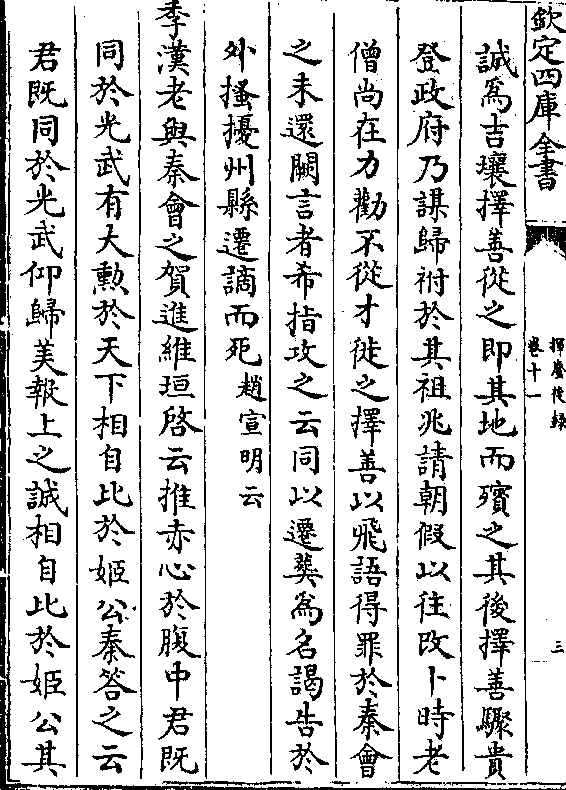 欽定四庫全書
揮麈後録
卷十一
三
誠為吉壤擇善從之即其地而殯之其後擇善驟貴
登政府乃謀歸祔於其祖兆請朝假以往改卜時老
僧尚在力勸不從才徙之擇善以飛語得罪於秦會
之未還闕言者希指攻之云同以遷葬為名謁告於
外搔擾州縣遷謫而死趙宣明云
季漢老與秦會之賀進維垣啓云推赤心於腹中君既
同於光武有大勲於天下相自比於姬公秦答之云
君既同於光武仰歸美報上之誠相自比於姬公其